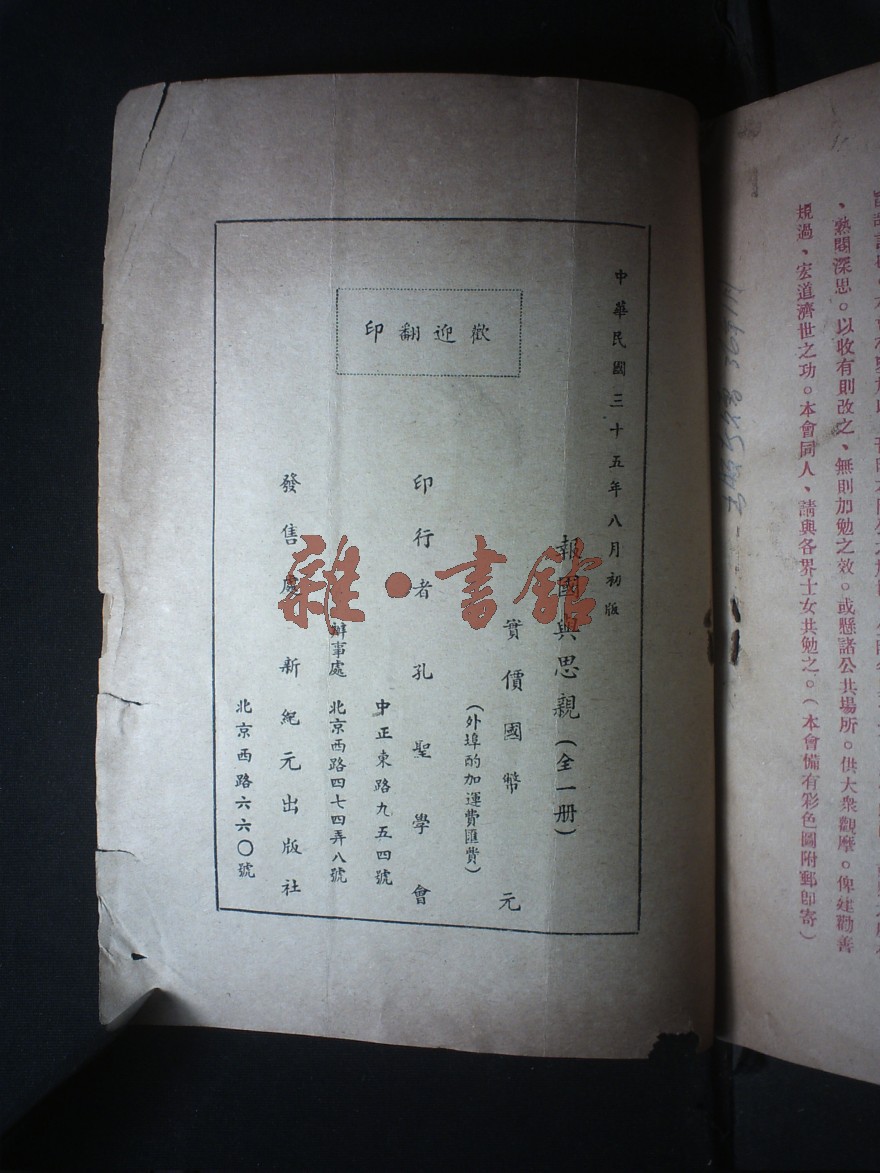 規過、宏道濟世之功。本會同人、請與各界士女共勉之。(本會備有彩色圖附郵即寄)
、熟閱深思。以收有則改之、無則加勉之效。或懸諸公共場所。供大衆觀摩。俾建勸善
中華民國三十五年八月初版
報國與思親(全一册)
實價國幣 元
(外埠酌加運費匯費)
歡迎翻印
印行者 孔聖學會
中正東路九五四號
辦事處 北京西路四七四弄八號
發售處 新紀元出版社
北京西路六六〇號
雜·書館